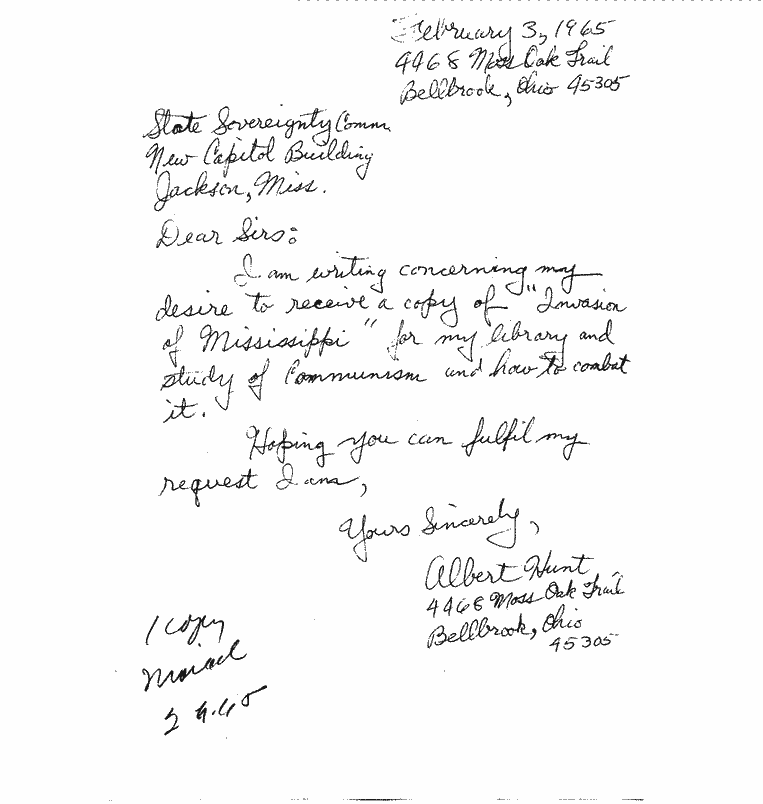 February 3, 1965
4468 Moss Oak Trail
Bellbrook, Ohio 45305
State Sovereignty Comm.
New Capitol Building
Jackson, Miss.
Dear Sirs:
I am writing concerning my
desire to receive a copy of "Invasion
of Mississippi" for my library and
study of Communism and how to combat
it.
Hoping you can fulfil my
request I am,
Yours Sincerely,
Albert Hunt
4468 Moss Oak Trail
Bellbrook, Ohio
45305
1 copy